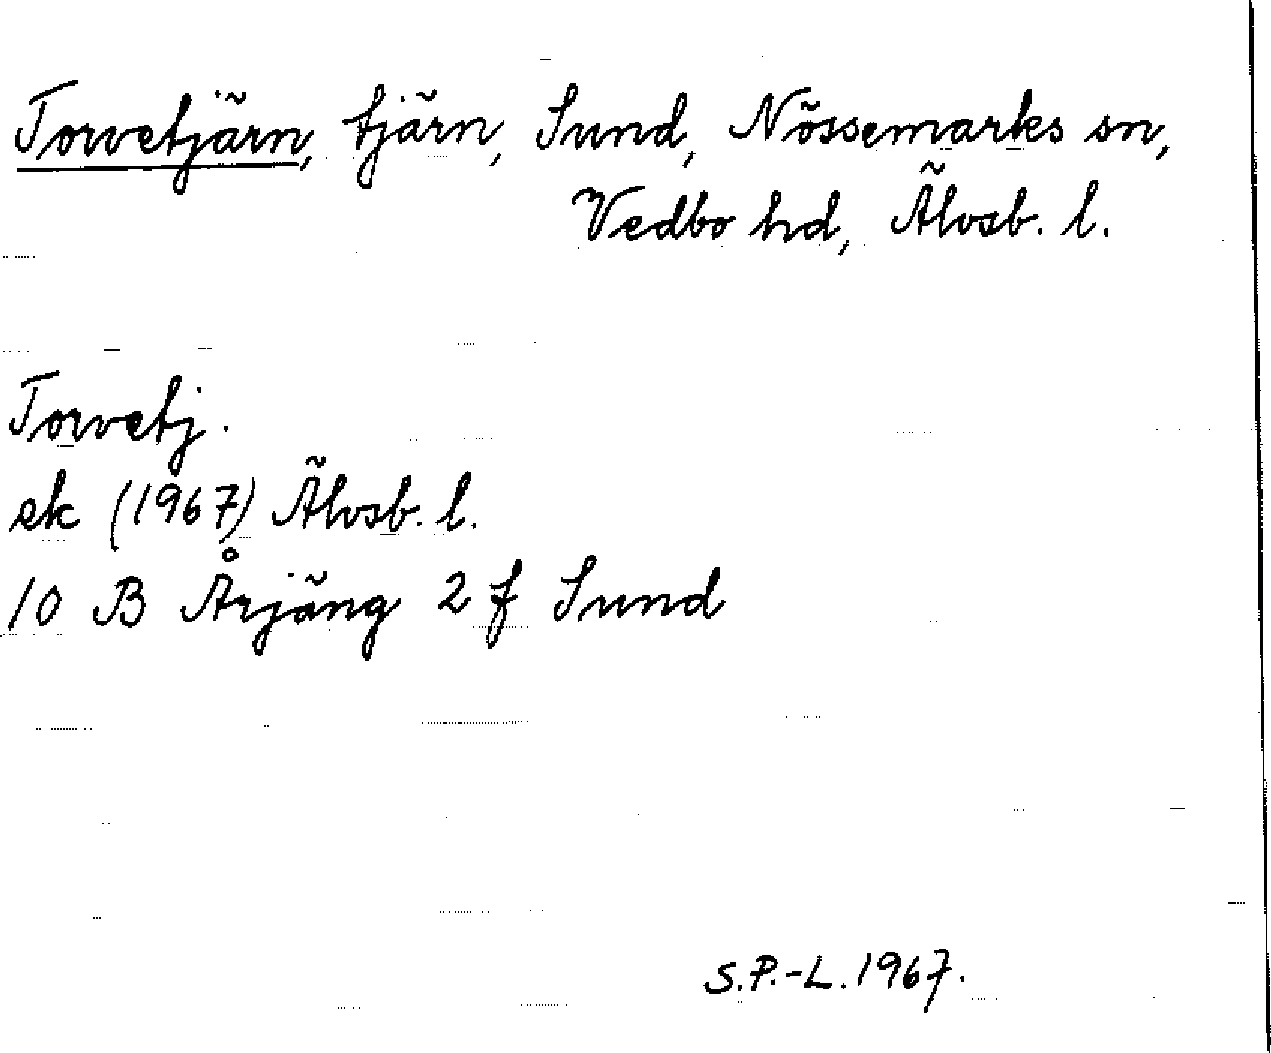 Torvetjärn, tjärn, Sund, Nössemarks sn,
Vedbo hd, Älvsb. l.
Torvetj.
ek (1967) Älvsb. l.
10 B Årjäng 2 f Sund
S.P.-L. 1967.